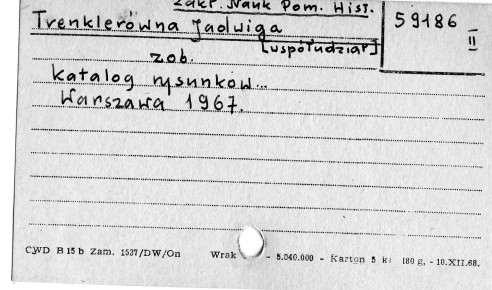 Zakł. Nauk Pom. Hist.
Trenklerówna Jadwiga
59186
II
[współudział]
zob.
Katalog rysunków...
Warszawa 1967.
CWD B 15 b Zam. 1537/DW/On Wrak - 5.040.000 - Karton 5 kl 180 g, - 10.XII.68.